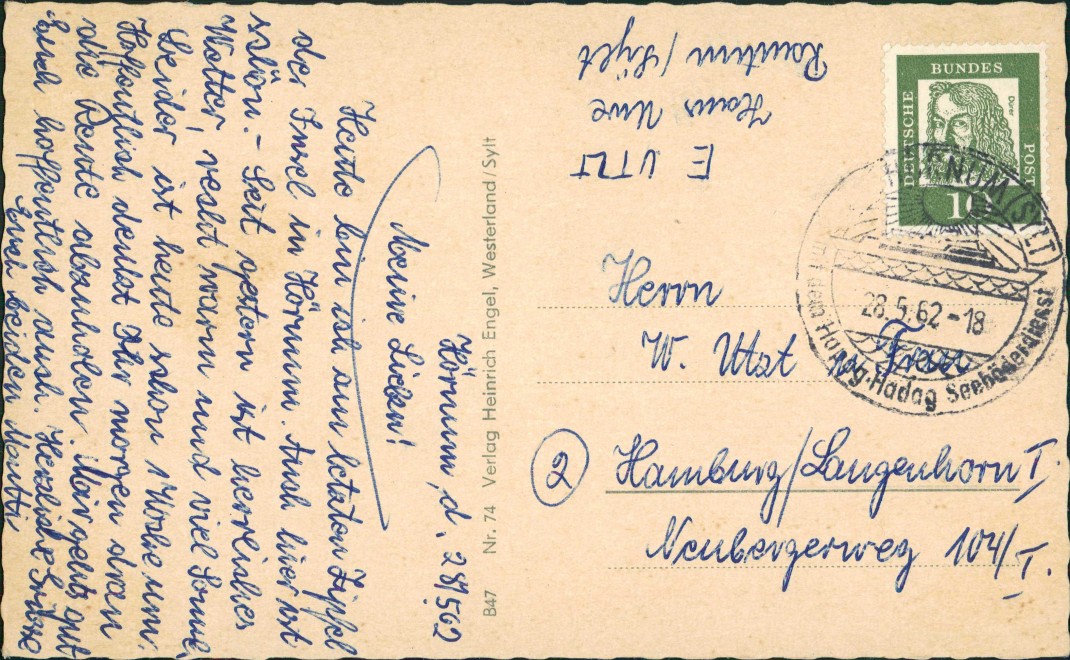 Hörnum, d. 28/5 62
Meine Lieben!
Heute bin ich am letzten Zipfel
der Insel in Hörnum. Auch hier ist
schön. - Seit gestern ist herrliches
Wetter, recht warm und viel Sonne
Leider ist heute schon 1 Woche um.
Hoffentlich denkt Ihr morgen dran
die Rente abzuholen. Mir gehts gut
Euch hoffentlich auch. Herzliche Grüsse
Euch beiden Mutti
B47 Nr. 74 Verlag Heinrich Engel, Westerland/Sylt
E UTZT
Haus Uwe
Rantum/Sylt
DEUTSCHE BUNDES POST
Dürer
10
HÖRNUM (SYLT)
28.5.62-18
Hapag-Hadag Seebäderdienst
Herrn
W. Utzt u. Frau
2 Hamburg/Langenhorn I,
Neubergerweg 104/I.